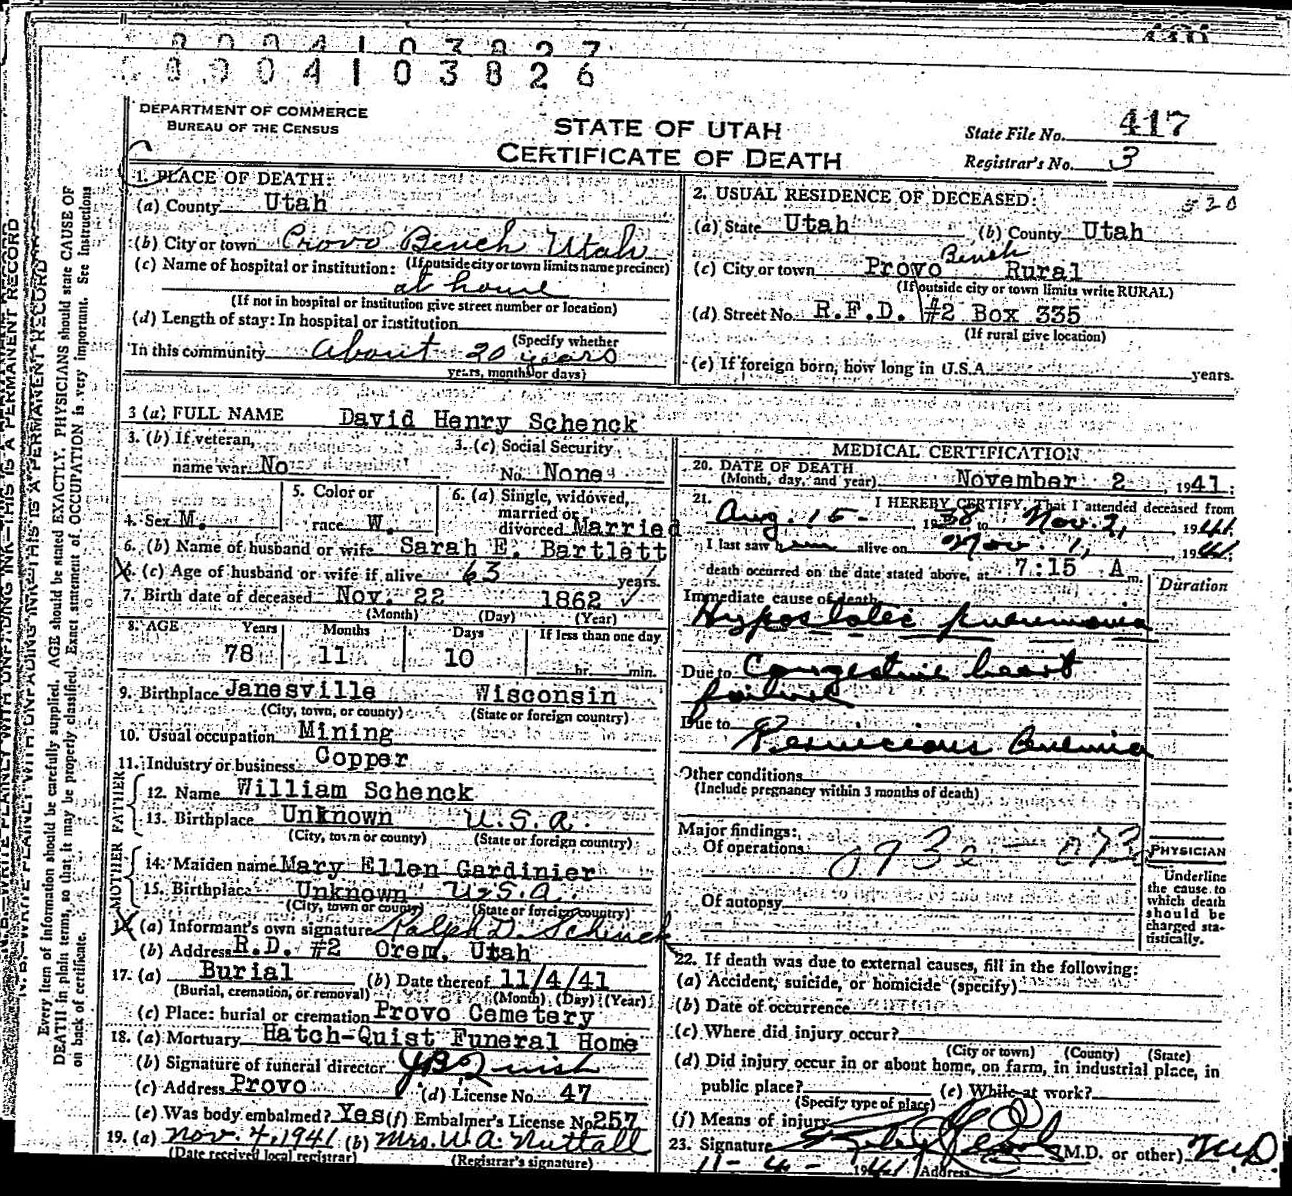 8904103826
DEPARTMENT OF COMMERCE
BUREAU OF THE CENSUS
STATE OF UTAH
CERTIFICATE OF DEATH
State File No. 417
Registrar's No. 3
1. PLACE OF DEATH:
(a) County Utah
(b) City or town Provo Bench Utah
(If outside city or town limits name precinct)
(c) Name of hospital or institution:
at home
(If not in hospital or institution give street number or location)
(d) Length of stay: In hospital or institution
(Specify whether
In this community About 20 years
years, months or days)
2. USUAL RESIDENCE OF DECEASED:
(a) State Utah (b) County Utah
(c) City or town Provo Bench Rural
(If outside city or town limits write RURAL)
(d) Street No. R.F.D. #2 Box 335
(If rural give location)
(e) If foreign born, how long in U.S.A. years.
3 (a) FULL NAME David Henry Schenck
3. (b) If veteran,
name war No
3. (c) Social Security
No. None
4. Sex M.
5. Color or
race W.
6. (a) Single, widowed,
married or
divorced Married
6. (b) Name of husband or wife Sarah E. Bartlett
6. (c) Age of husband or wife if alive 63 years.
7. Birth date of deceased Nov. 22 1862
(Month) (Day) (Year)
8. AGE Years Months Days If less than one day
78 11 10 hr. min.
9. Birthplace Janesville Wisconsin
(City, town, or county) (State or foreign country)
10. Usual occupation Mining
11. Industry or business Copper
FATHER
12. Name William Schenck
13. Birthplace Unknown U.S.A.
(City, town or county) (State or foreign country)
MOTHER
14. Maiden name Mary Ellen Gardinier
15. Birthplace Unknown U.S.A.
(City, town or county) (State or foreign country)
(a) Informant's own signature Ralph D. Schenck
(b) Address R.D. #2 Orem, Utah
17. (a) Burial (b) Date thereof 11/4/41
(Burial, cremation, or removal) (Month) (Day) (Year)
(c) Place: burial or cremation Provo Cemetery
18. (a) Mortuary Hatch-Quist Funeral Home
(b) Signature of funeral director
(c) Address Provo (d) License No. 47
(e) Was body embalmed? Yes (f) Embalmer's License No 257
19. (a) Nov. 4, 1941 (b) Mrs. W. A. Nuttall
(Date received local registrar) (Registrar's signature)
MEDICAL CERTIFICATION
20. DATE OF DEATH
(Month, day, and year) November 2, 1941.
21. I HEREBY CERTIFY, That I attended deceased from
Aug. 15 - 1938 to Nov. 2, 1941.
I last saw him alive on Nov. 1, 1941.
death occurred on the date stated above, at 7:15 A m.
Duration
Immediate cause of death
Hypostatic pneumonia
Due to Congestive heart
failure
Due to
Pernicious Anemia
Other conditions
(Include pregnancy within 3 months of death)
Major findings:
Of operations
Of autopsy
PHYSICIAN
Underline
the cause to
which death
should be
charged sta-
tistically.
22. If death was due to external causes, fill in the following:
(a) Accident, suicide, or homicide (specify)
(b) Date of occurrence
(c) Where did injury occur?
(City or town) (County) (State)
(d) Did injury occur in or about home, on farm, in industrial place, in
public place? (e) While at work?
(Specify type of place)
(f) Means of injury
23. Signature (M.D. or other) M.D.
11-4-1941 Address
Every item of information should be carefully supplied. AGE should be stated EXACTLY. PHYSICIANS should state CAUSE OF
DEATH in plain terms, so that it may be properly classified. Exact statement of OCCUPATION is very important. See instructions
on back of certificate.